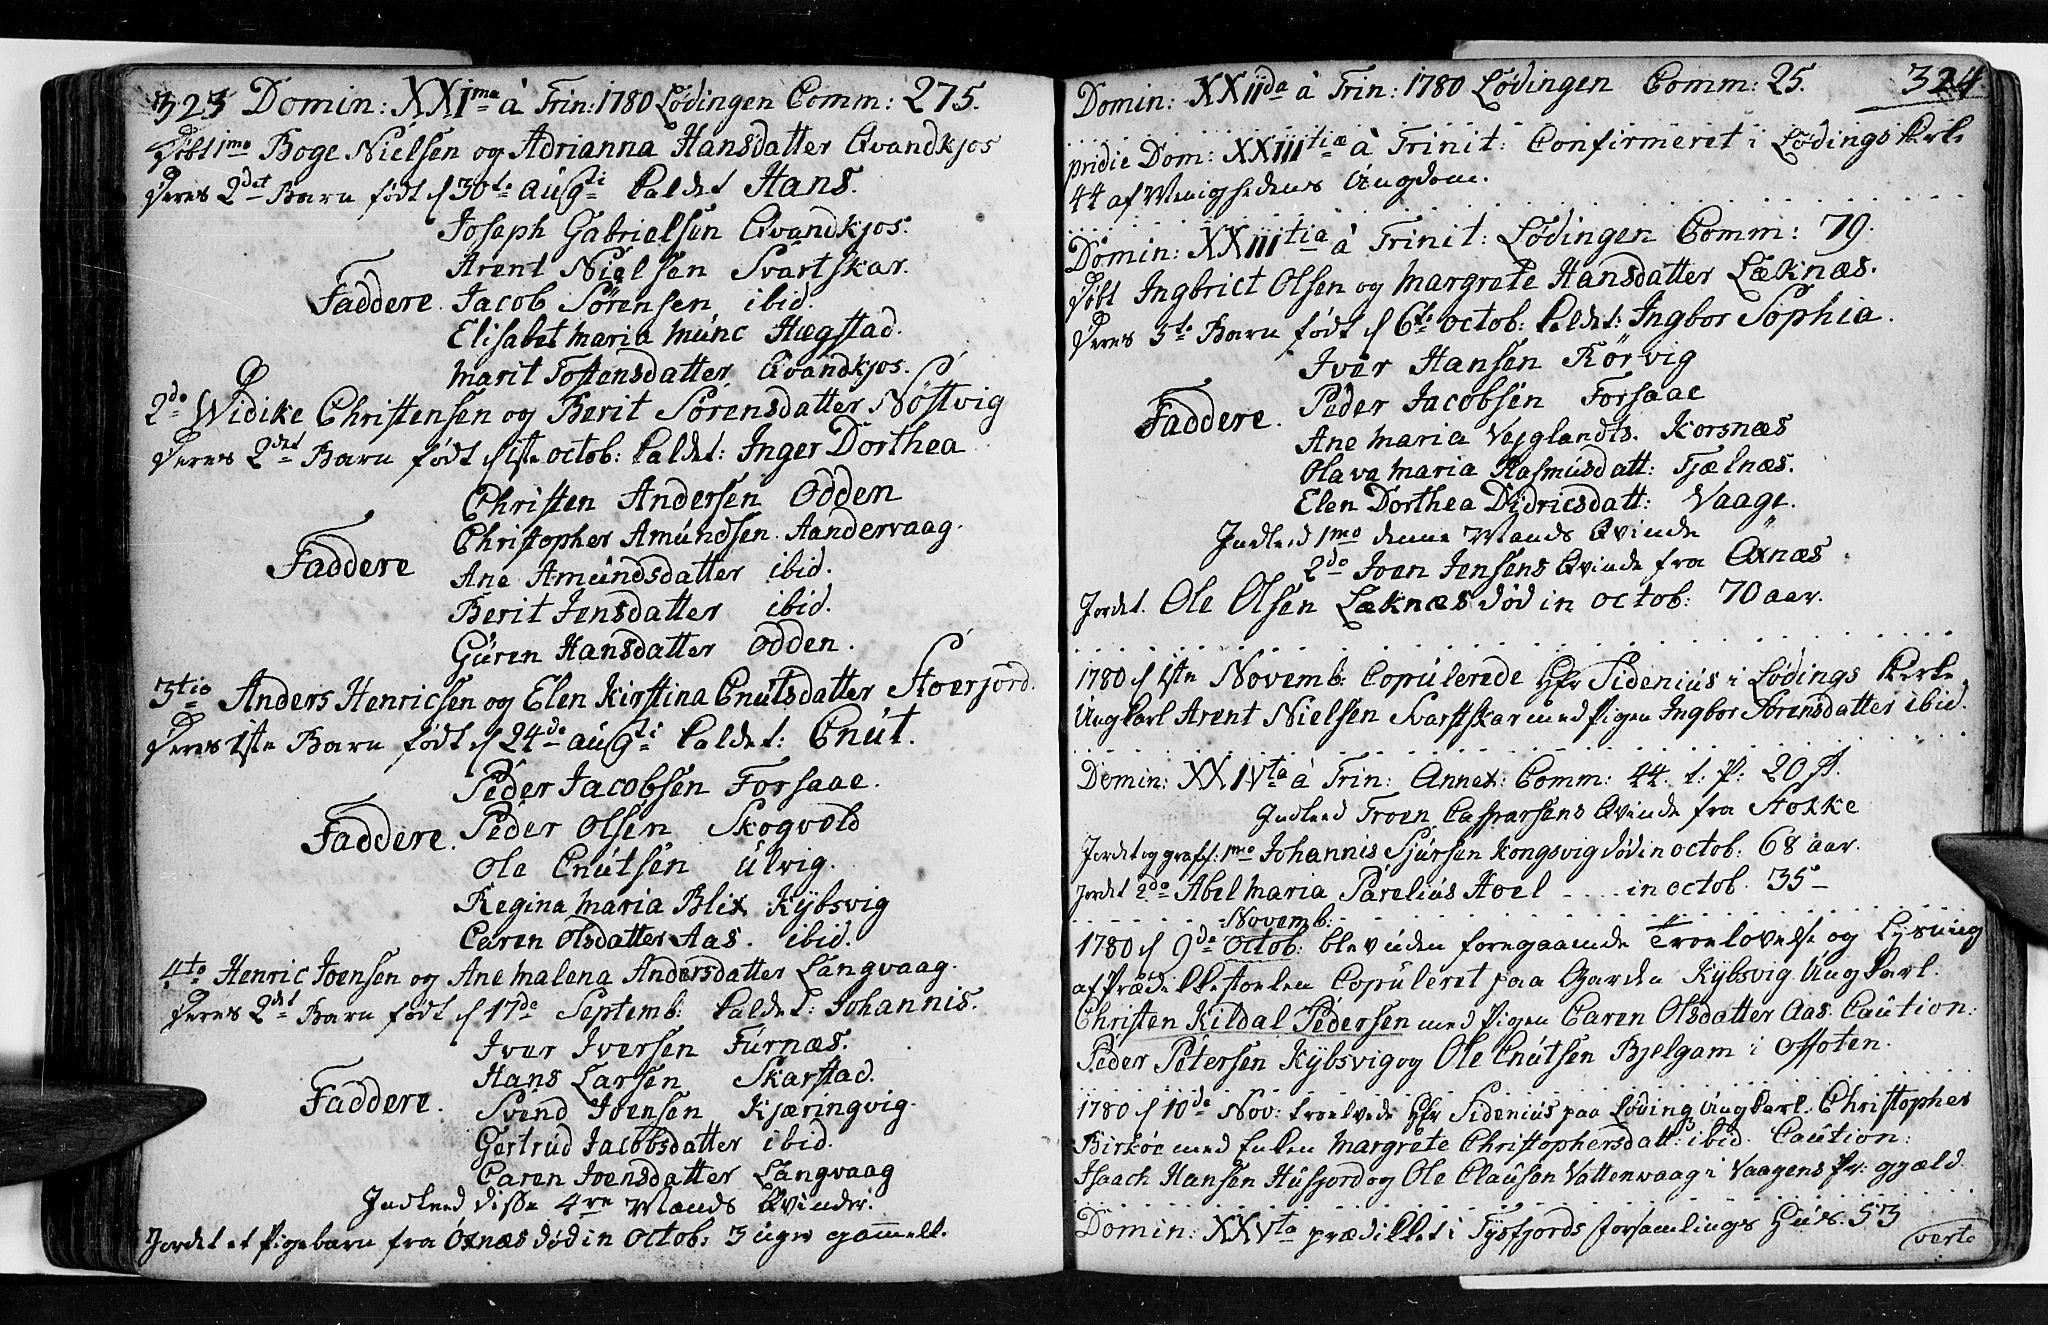 323 Domin: XXIma à Trin: 1780 Lødingen Comm: 275.
Døbt 1mo Boge Nielsen og Adrianna Hansdatter Qvandkjos
Deres 2det Barn født d 30te augti kaldet Hans.
Joseph Gabrielsen Qvandkjos.
Arent Nielsen Svartskar.
Faddere. Jacob Sørensen ibid.
Elisabet Maria Munc Hægstad.
Marit Tostensdatter Qvandkjos.
2do Widike Christensen og Berit Sørensdatter Nøstvig
Deres 2det Barn født d 1ste octob: kaldet: Inger Dorthea
Christen Andersen Odden
Christopher Amundsen Aandervaag.
Faddere
Ane Amundsdatter ibid.
Berit Jensdatter ibid.
Guren Hansdatter Odden.
3tio Anders Henricsen og Elen Kirstina Cnutsdatter Stoerjord.
Deres 1ste Barn født d 24de augti kaldet: Cnut.
Peder Jacobsen Forsaae.
Faddere. Peder Olsen Skogvold
Ole Cnutsen Ulvig.
Regina Maria Blix Kybsvig
Caren Olsdatter Aas. ibid.
4to Henric Joensen og Ane Malena Andersdatter Langvaag.
Deres 2det Barn født d 17de Septemb: kaldet: Johannis.
Iver Iversen Furnæs.
Hans Larsen Skarstad.
Faddere. Svend Joensen Kjæringvig.
Gertrud Jacobsdatter ibid.
Caren Joensdatter Langvaag
Indleed disse 4re Mænds Qvinder.
Jordet et Pigebarn fra Oxnæs død in octob: 3 uger gammelt.
Domin: XXIIda à Trin: 1780 Lødingen Comm: 25. 324
pridie Dom: XXIIItiæ à Trinit: Confirmeret i Lødings Kirke
44 af Menighedens Ungdom.
Domin: XXIIItia à Trinit: Lødingen Comm: 79.
Døbt Ingbrict Olsen og Margrete Hansdatter Læknæs.
Deres 3te Barn født d 6te octob: kaldet: Ingbor Sophia.
Iver Hansen Rørvig
Peder Jacobsen Forsaae
Faddere.
Ane Maria Vejglandts. Korsnæs
Olava Maria Rasmusdatt: Fjælnæs.
Elen Dorthea Didricsdatt: Vaage.
Indleed 1mo denne Mands Qvinde
2do Joen Jensens Qvinde fra Oxnæs
Jordet. Ole Olsen Læknæs død in octob: 70 aar.
1780 d 1ste Novemb: Copulerede Hr Sidenius i Lødings Kirke
Ungkarl Arent Nielsen Svartskar med Pigen Ingbor Sørensdatter ibid.
Domin: XXIVta à Trin: Annex: Comm: 44. t: P: 20 ß.
Indleed Troen Casparsens Qvinde fra Stokke
Jordet og graff: 1mo Johannis Sjursen Kongsvig død in octob: 68 aar.
Jordet 2do Abel Maria Parelius Hoel - - - in octob. 35 -
Novemb:
1780 d 9de octob: blev uden foregaaende Troelovelse og Lysning
af Prædikkestoelen Copuleret paa Gaarden Kybsvig Ungkarl.
Christen Kildal Pedersen med Pigen Caren Olsdatter Aas. Caution:
Peder Petersen Kybsvig og Ole Cnutsen Bjelgam i Offoten.
1780 d 10de Nov: troelvede Hr Sidenius paa Løding Ungkarl. Christopher
Birkøe med Enken Margrete Christophersdatt: ibid. Caution:
Isaach Hansen Husjord og Ole Clausen Vattenvaag i Vaagens Pr: gjæld.
Domin: XXVta prædikket i Tysfjords forsamlings Huus. 53
verte